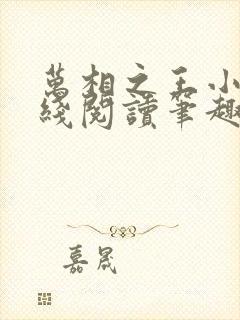 萬相之王小
綫閱讀筆趣
嘉晟